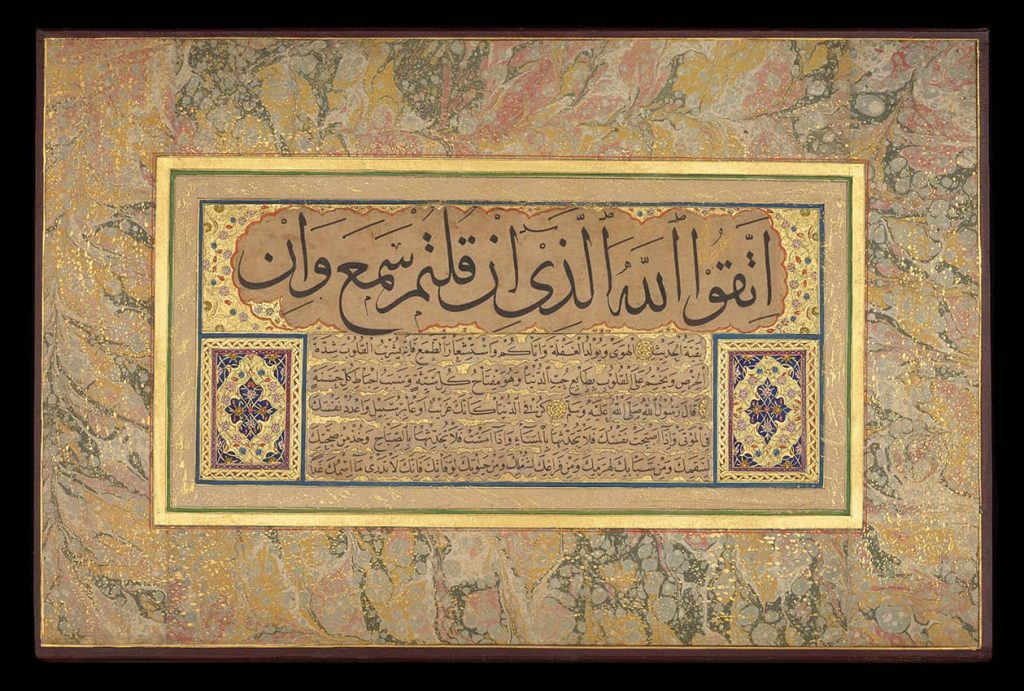 اِتَّقُوا اللهَ الَّذي اِنْ قُلْتُمْ سَمِعَ وَاِنْ
الهوى ويولد الغفلة واياكم واستشعار الطمع فانه يشرب القلوب شدة
الحرص ويختم على القلوب بطابع حب الدنيا وهو مفتاح كل سيئة وسبب احباط كل حسنة
قال رسول الله صلى الله عليه وسلم كن في الدنيا كانك غريب او عابر سبيل واعدد نفسك
في الموتى واذا اصبحت نفسك فلا تحدثها بالمساء واذا امسيت فلا تحدثها بالصباح وخذ من صحتك
لسقمك ومن شبابك لهرمك ومن فراغك لشغلك ومن حيوتك لوفاتك فانك لا تدرى ما اسمك غدا